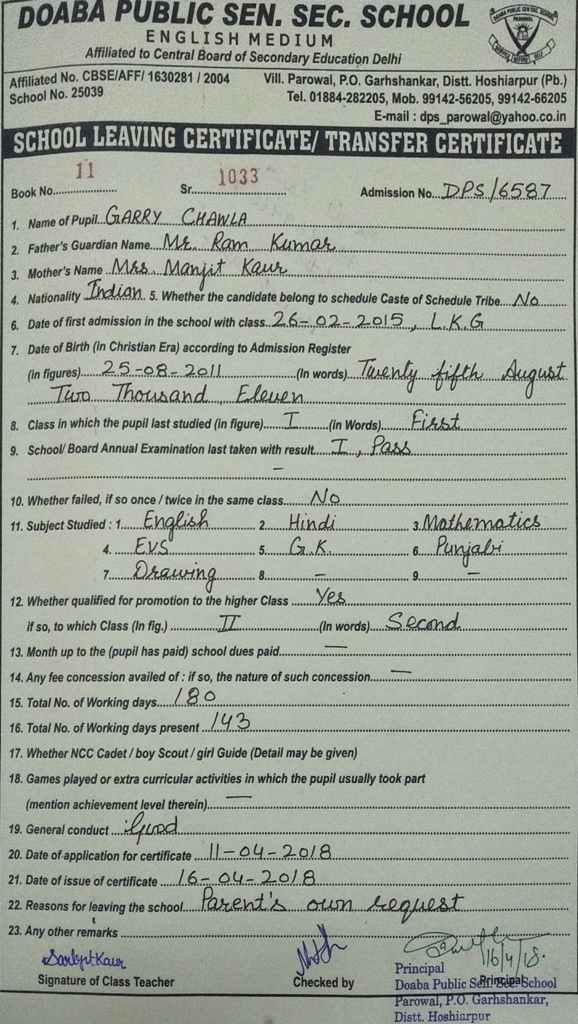 DOABA PUBLIC SEN. SEC. SCHOOL
ENGLISH MEDIUM
Affiliated to Central Board of Secondary Education Delhi
Affiliated No. CBSE/AFF/ 1630281 / 2004 Vill. Parowal, P.O. Garhshankar, Distt. Hoshiarpur (Pb.)
School No. 25039 Tel. 01884-282205, Mob. 99142-56205, 99142-66205
E-mail : dps_parowal@yahoo.co.in
SCHOOL LEAVING CERTIFICATE/ TRANSFER CERTIFICATE
Book No. 11 Sr. 1033 Admission No. DPS/6587
1. Name of Pupil GARRY CHAWLA
2. Father's Guardian Name Mr. Ram Kumar
3. Mother's Name Mrs Manjit Kaur
4. Nationality Indian 5. Whether the candidate belong to schedule Caste of Schedule Tribe No
6. Date of first admission in the school with class 26-02-2015, L.K.G
7. Date of Birth (in Christian Era) according to Admission Register
(in figures) 25-08-2011 (In words) Twenty fifth August
Two Thousand Eleven
8. Class in which the pupil last studied (in figure) I (in Words) First
9. School/ Board Annual Examination last taken with result I, Pass
-
10. Whether failed, if so once / twice in the same class No
11. Subject Studied : 1. English 2. Hindi 3. Mathematics
4. EVS 5. G.K. 6. Punjabi
7. Drawing 8. - 9. -
12. Whether qualified for promotion to the higher Class Yes
if so, to which Class (In fig.) II (In words) Second
13. Month up to the (pupil has paid) school dues paid -
14. Any fee concession availed of : if so, the nature of such concession -
15. Total No. of Working days 180
16. Total No. of Working days present 143
17. Whether NCC Cadet / boy Scout / girl Guide (Detail may be given)
18. Games played or extra curricular activities in which the pupil usually took part
(mention achievement level therein) -
19. General conduct Good
20. Date of application for certificate 11-04-2018
21. Date of issue of certificate 16-04-2018
22. Reasons for leaving the school Parent's own request
23. Any other remarks
Sarbjit Kaur 16/4/18.
Signature of Class Teacher Checked by Principal
Principal
Doaba Public Sen. Sec. School
Parowal, P.O. Garhshankar,
Distt. Hoshiarpur